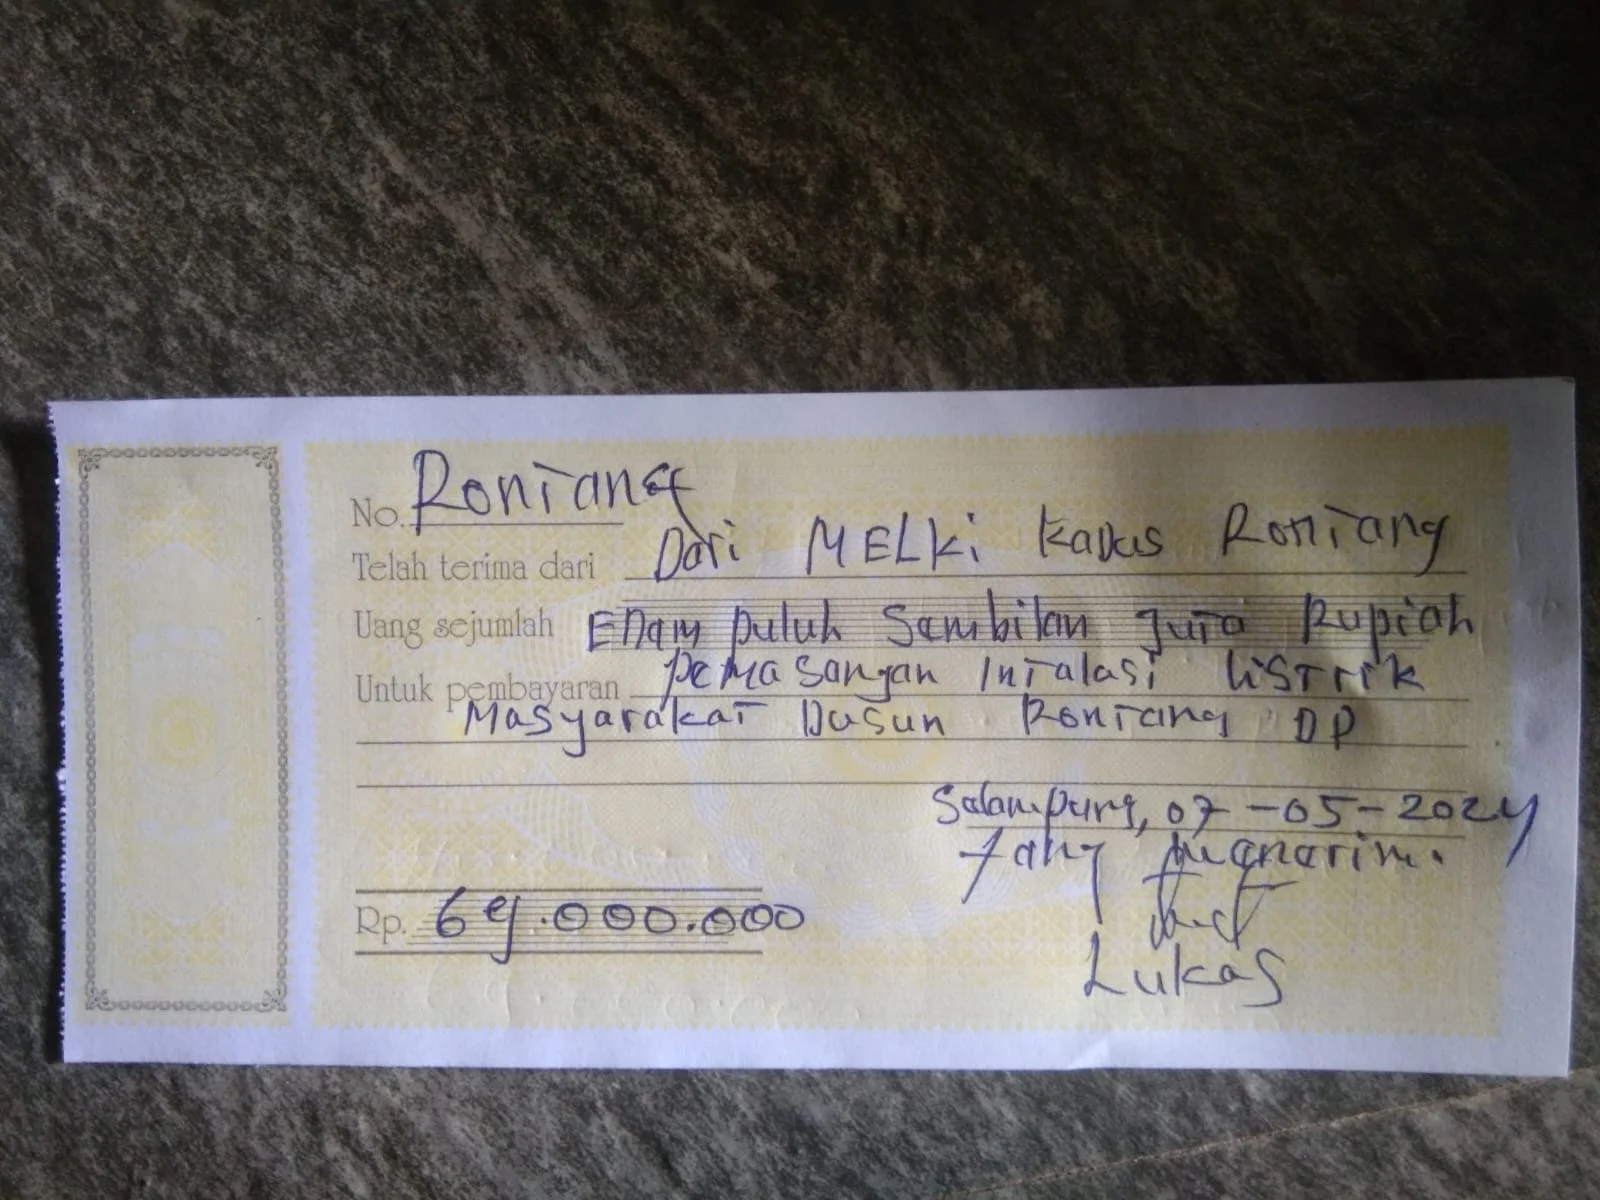 No. Rontang
Telah terima dari Dari MELKi Kadus Rontang
Uang sejumlah Enam puluh Sambilan Juta Rupiah
Untuk pembayaran pemasangan Intalasi listrik
Masyarakat Dusun Rontang DP
Salampung, 07-05-2024
Yang menarima
Rp. 69.000.000
Lukas